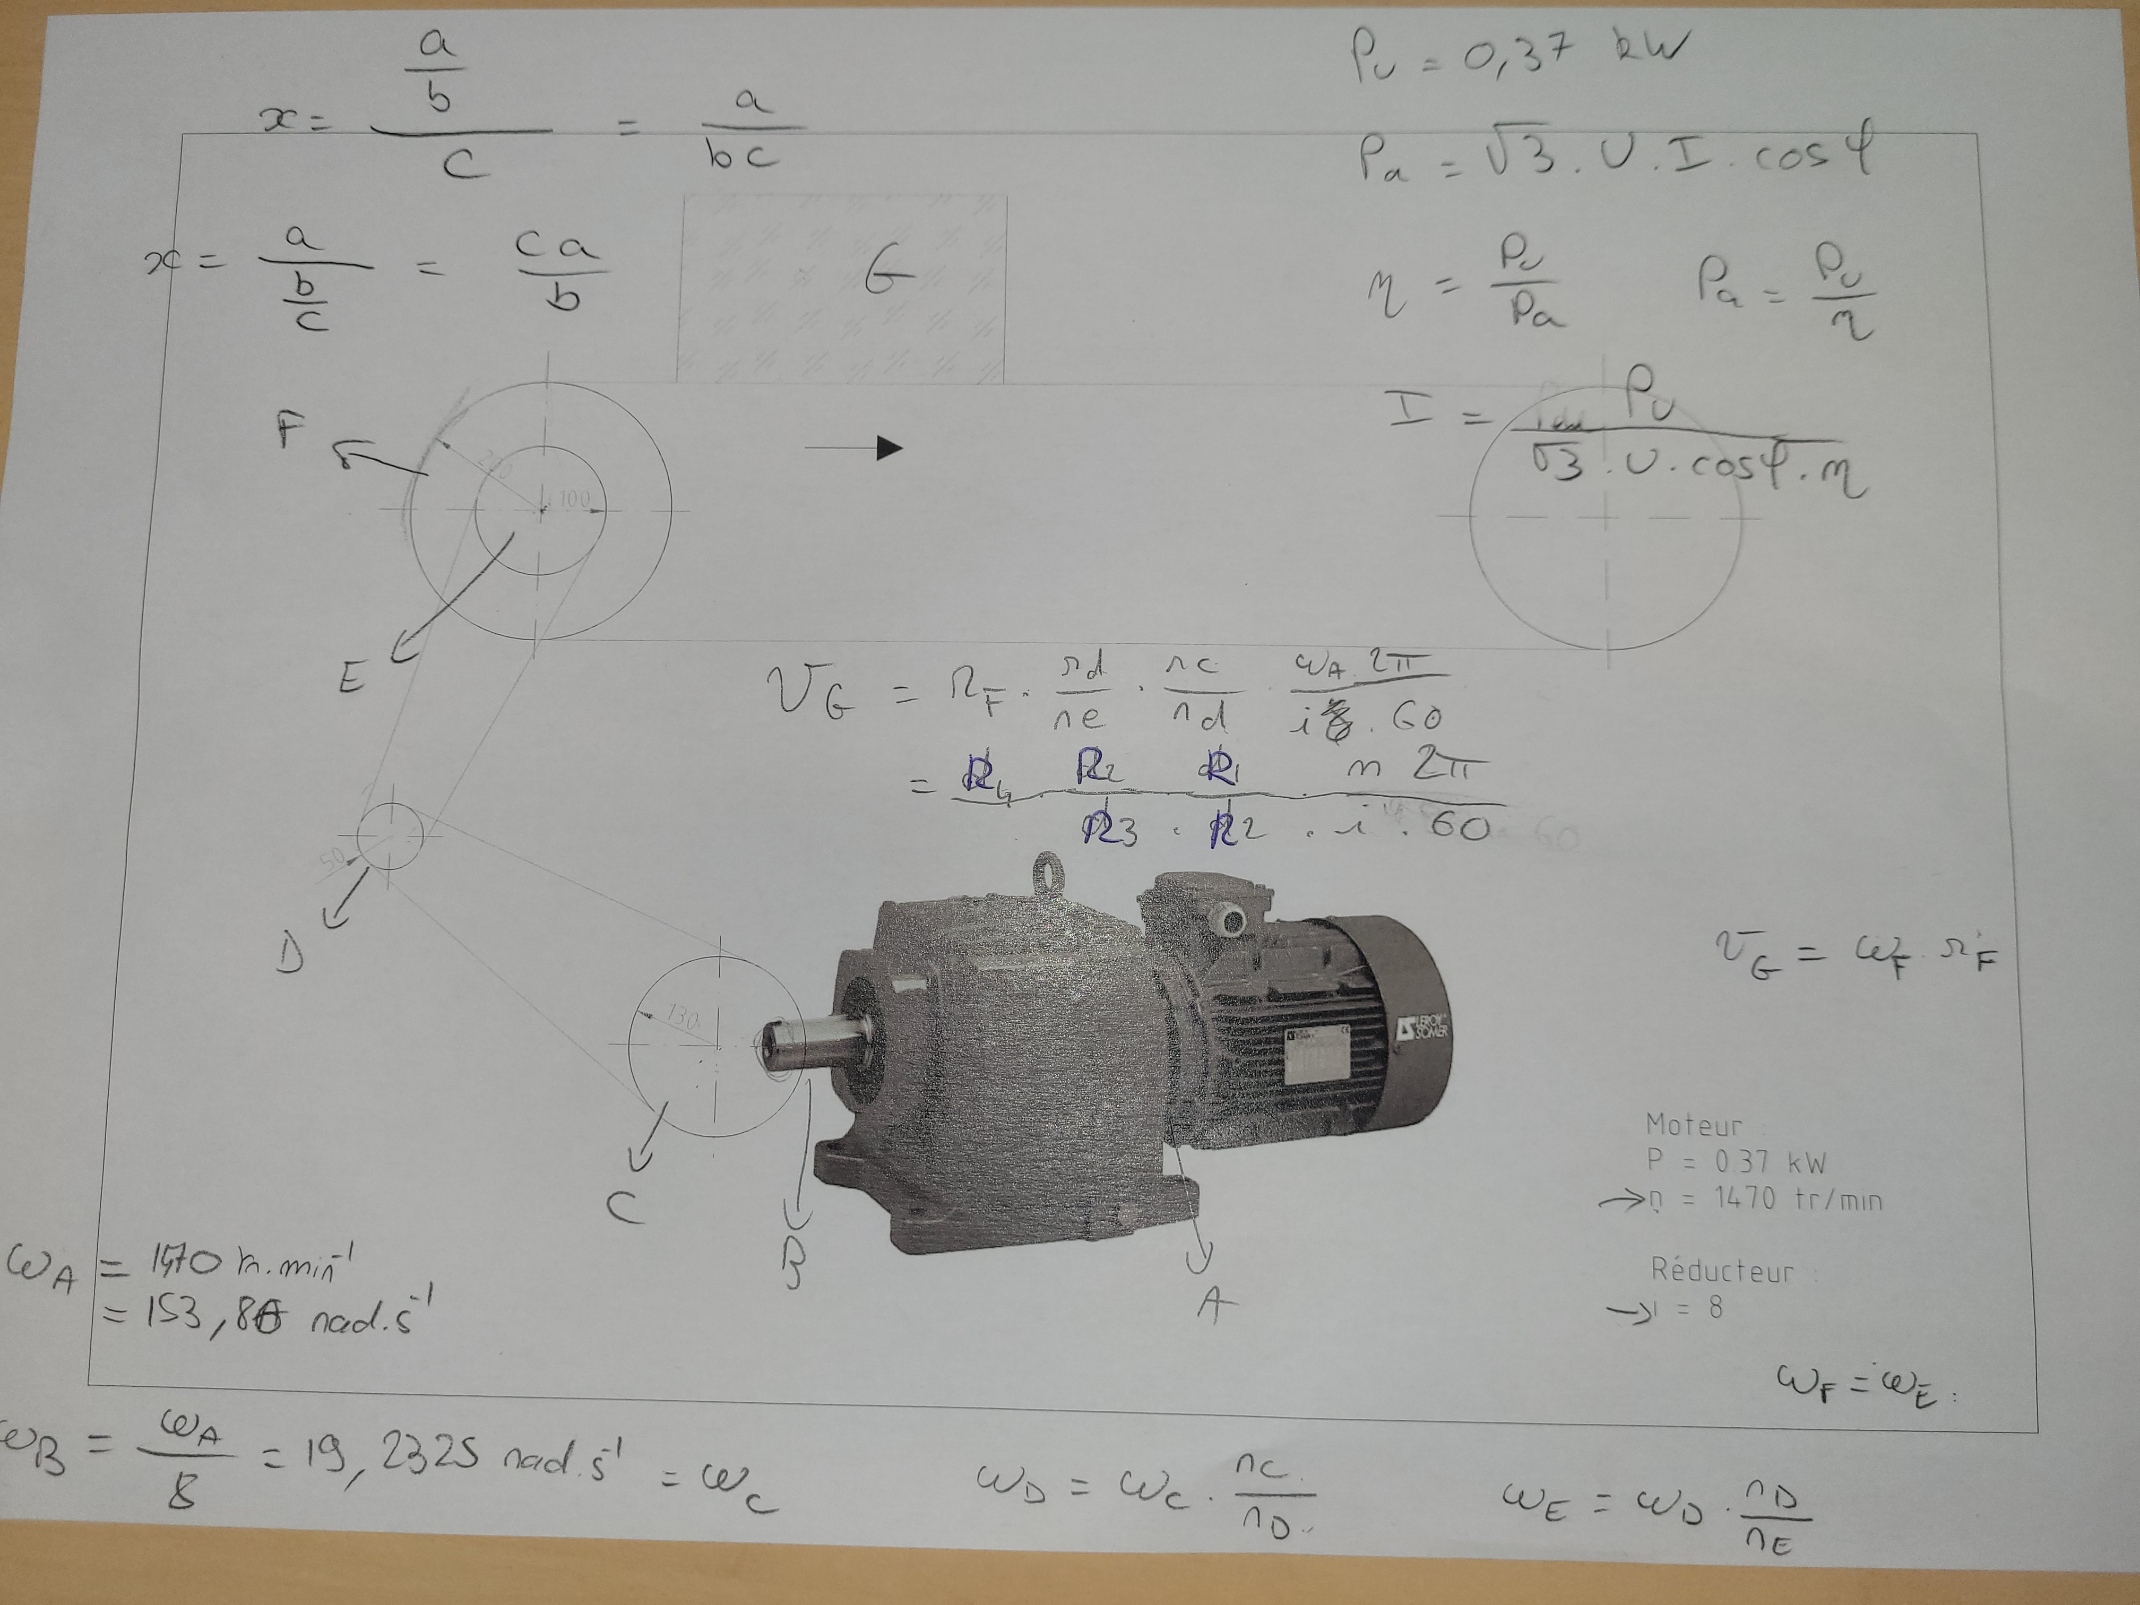 x = a/b / c = a/bc
x = a / b/c = ca/b
G
Pu = 0,37 kW
Pa = √3 . U . I . cos φ
η = Pu/Pa Pa = Pu/η
I = Pu / √3 . U . cos φ . η
F
100
E
VG = rF . rd/re . rc/rd . ωA 2π / i . 60
= R4 . R2 . R1 . n 2π / R3 . R2 . i . 60
50
D
130
C
B
A
LEROY SOMER
VG = ωF . rF
Moteur :
P = 0.37 kW
→ n = 1470 tr/min
Réducteur :
→ i = 8
ωA = 1470 tr.min⁻¹
= 153,86 rad.s⁻¹
ωF = ωE
ωB = ωA/8 = 19,2325 rad.s⁻¹ = ωC
ωD = ωC . rC/rD
ωE = ωD . rD/rE